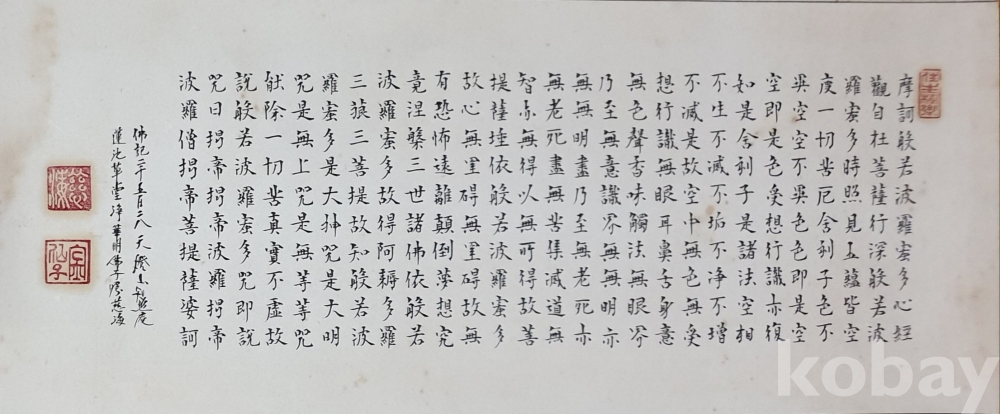 摩訶般若波羅蜜多心經
觀自在菩薩行深般若波
羅蜜多時照見五蘊皆空
度一切苦厄舍利子色不
異空空不異色色即是空
空即是色受想行識亦復
如是舍利子是諸法空相
不生不滅不垢不淨不增
不減是故空中無色無受
想行識無眼耳鼻舌身意
無色聲香味觸法無眼界
乃至無意識界無無明亦
無無明盡乃至無老死亦
無老死盡無苦集滅道無
智亦無得以無所得故菩
提薩埵依般若波羅蜜多
故心無罣碍無罣碍故無
有恐怖遠離顛倒夢想究
竟涅槃三世諸佛依般若
波羅蜜多故得阿耨多羅
三藐三菩提故知般若波
羅蜜多是大神咒是大明
咒是無上咒是無等等咒
能除一切苦真實不虛故
說般若波羅蜜多咒即說
咒曰揭帝揭帝波羅揭帝
波羅僧揭帝菩提薩婆訶
佛紀二千五百二八天
蓮池草堂淨業
kobay